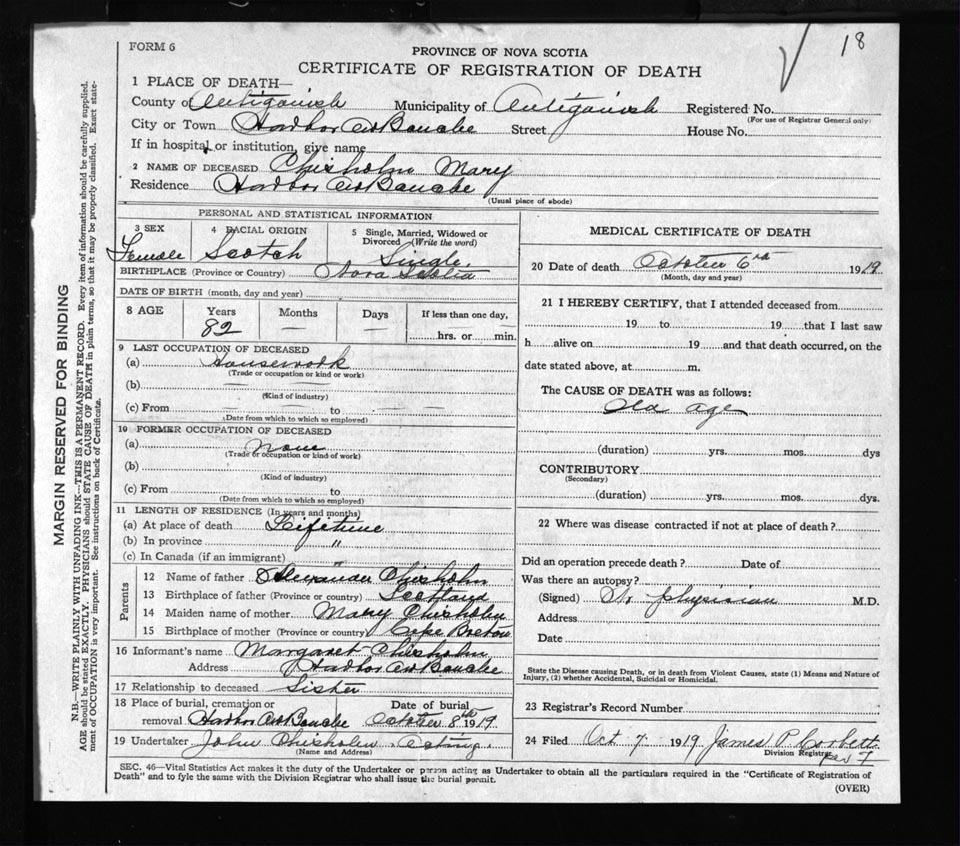 18
FORM 6
PROVINCE OF NOVA SCOTIA
CERTIFICATE OF REGISTRATION OF DEATH
1 PLACE OF DEATH—
County of Antigonish Municipality of Antigonish Registered No.
(For use of Registrar General only)
City or Town Harbor Au Bouche Street House No.
If in hospital or institution, give name
2 NAME OF DECEASED Chisholm Mary
Residence Harbor Au Bouche
(Usual place of abode)
PERSONAL AND STATISTICAL INFORMATION
3 SEX 4 RACIAL ORIGIN 5 Single, Married, Widowed or Divorced (Write the word)
Female Scotch Single.
BIRTHPLACE (Province or Country) Nova Scotia
DATE OF BIRTH (month, day and year)
8 AGE Years Months Days If less than one day,
82 — — hrs. or min.
9 LAST OCCUPATION OF DECEASED
(a) Housework
(Trade or occupation or kind or work)
(b) — —
(Kind of industry)
(c) From — to — —
(Date from which to which so employed)
10 FORMER OCCUPATION OF DECEASED
(a) none
(Trade or occupation or kind of work)
(b)
(Kind of industry)
(c) From to
(Date from which to which so employed)
11 LENGTH OF RESIDENCE (In years and months)
(a) At place of death Lifetime
(b) In province "
(c) In Canada (if an immigrant) "
Parents
12 Name of father Alexander Chisholm
13 Birthplace of father (Province or country) Scotland
14 Maiden name of mother Mary Chisholm
15 Birthplace of mother (Province or country) Cape Breton
16 Informant's name Margaret Chisholm
Address Harbor Au Bouche
17 Relationship to deceased Sister
18 Place of burial, cremation or removal Harbor Au Bouche Date of burial October 8th 1919
19 Undertaker John Chisholm Acting.
(Name and Address)
MEDICAL CERTIFICATE OF DEATH
20 Date of death October 6 1919
(Month, day and year)
21 I HEREBY CERTIFY, that I attended deceased from
19 to 19 that I last saw
h alive on 19 and that death occurred, on the
date stated above, at m.
The CAUSE OF DEATH was as follows:
Old age
(duration) yrs. mos. dys
CONTRIBUTORY
(Secondary)
(duration) yrs. mos. dys.
22 Where was disease contracted if not at place of death?
Did an operation precede death? Date of
Was there an autopsy?
(Signed) No physician M.D.
Address
Date
State the Disease causing Death, or in death from Violent Causes, state (1) Means and Nature of
Injury, (2) whether Accidental, Suicidal or Homicidal.
23 Registrar's Record Number
24 Filed Oct 7 1919 James P Corbett
Division Registrar
SEC. 46—Vital Statistics Act makes it the duty of the Undertaker or person acting as Undertaker to obtain all the particulars required in the "Certificate of Registration of
Death" and to fyle the same with the Division Registrar who shall issue the burial permit.
(OVER)
MARGIN RESERVED FOR BINDING
N.B.—WRITE PLAINLY WITH UNFADING INK—THIS IS A PERMANENT RECORD. Every item of information should be carefully supplied.
AGE should be stated EXACTLY. PHYSICIANS should STATE CAUSE OF DEATH in plain terms, so that it may be properly classified. Exact state-
ment of OCCUPATION is very important. See instructions on back of Certificate.